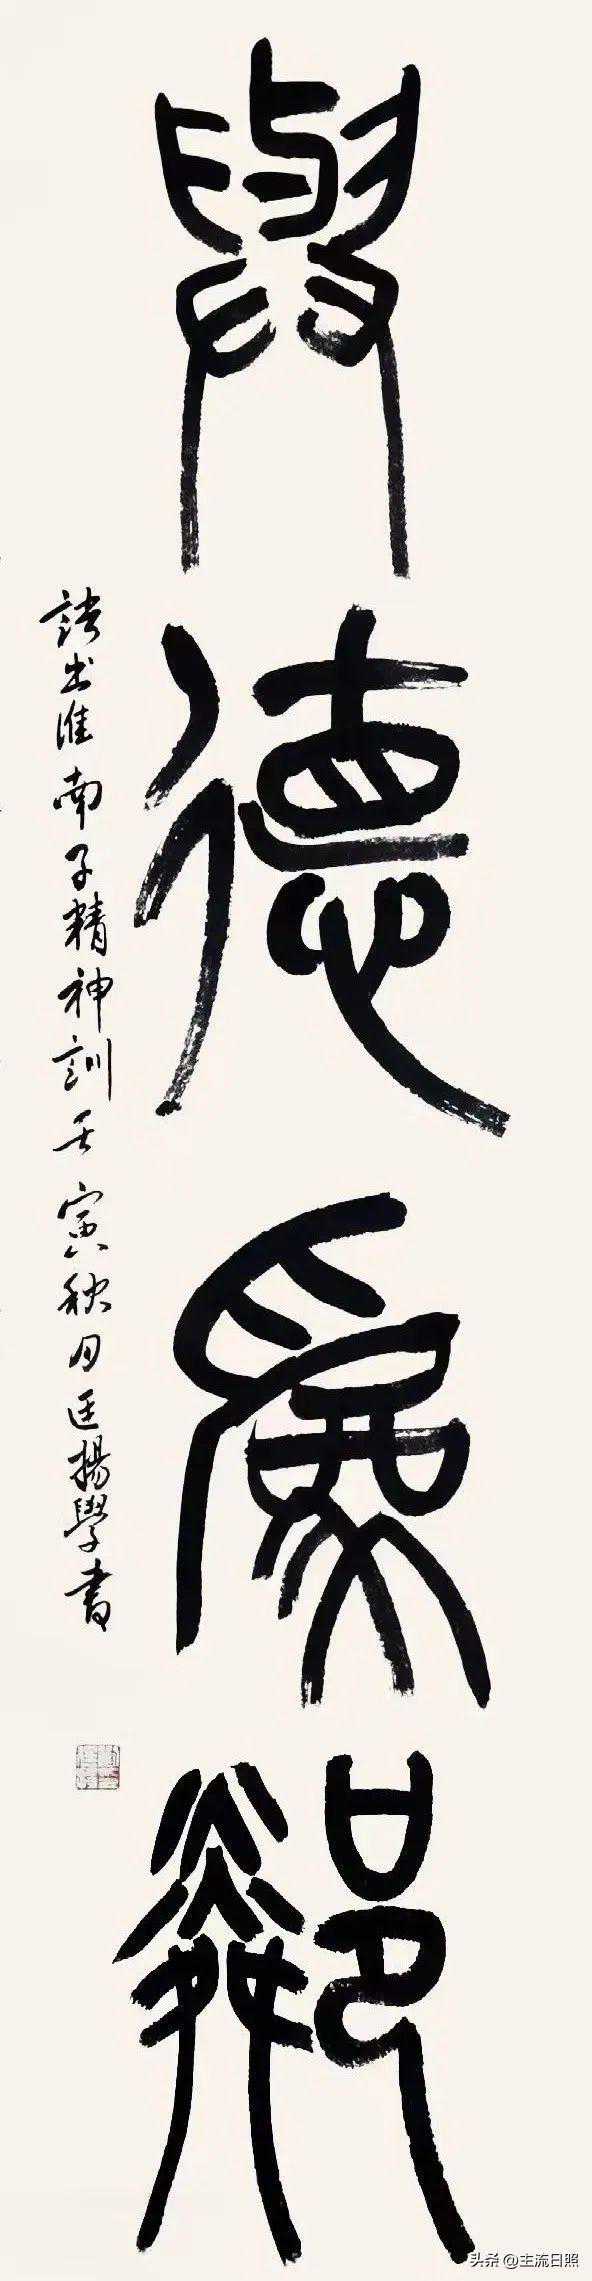 與德爲鄰
語出淮南子精神訓壬寅秋月匡揚學書
头条@主流日照